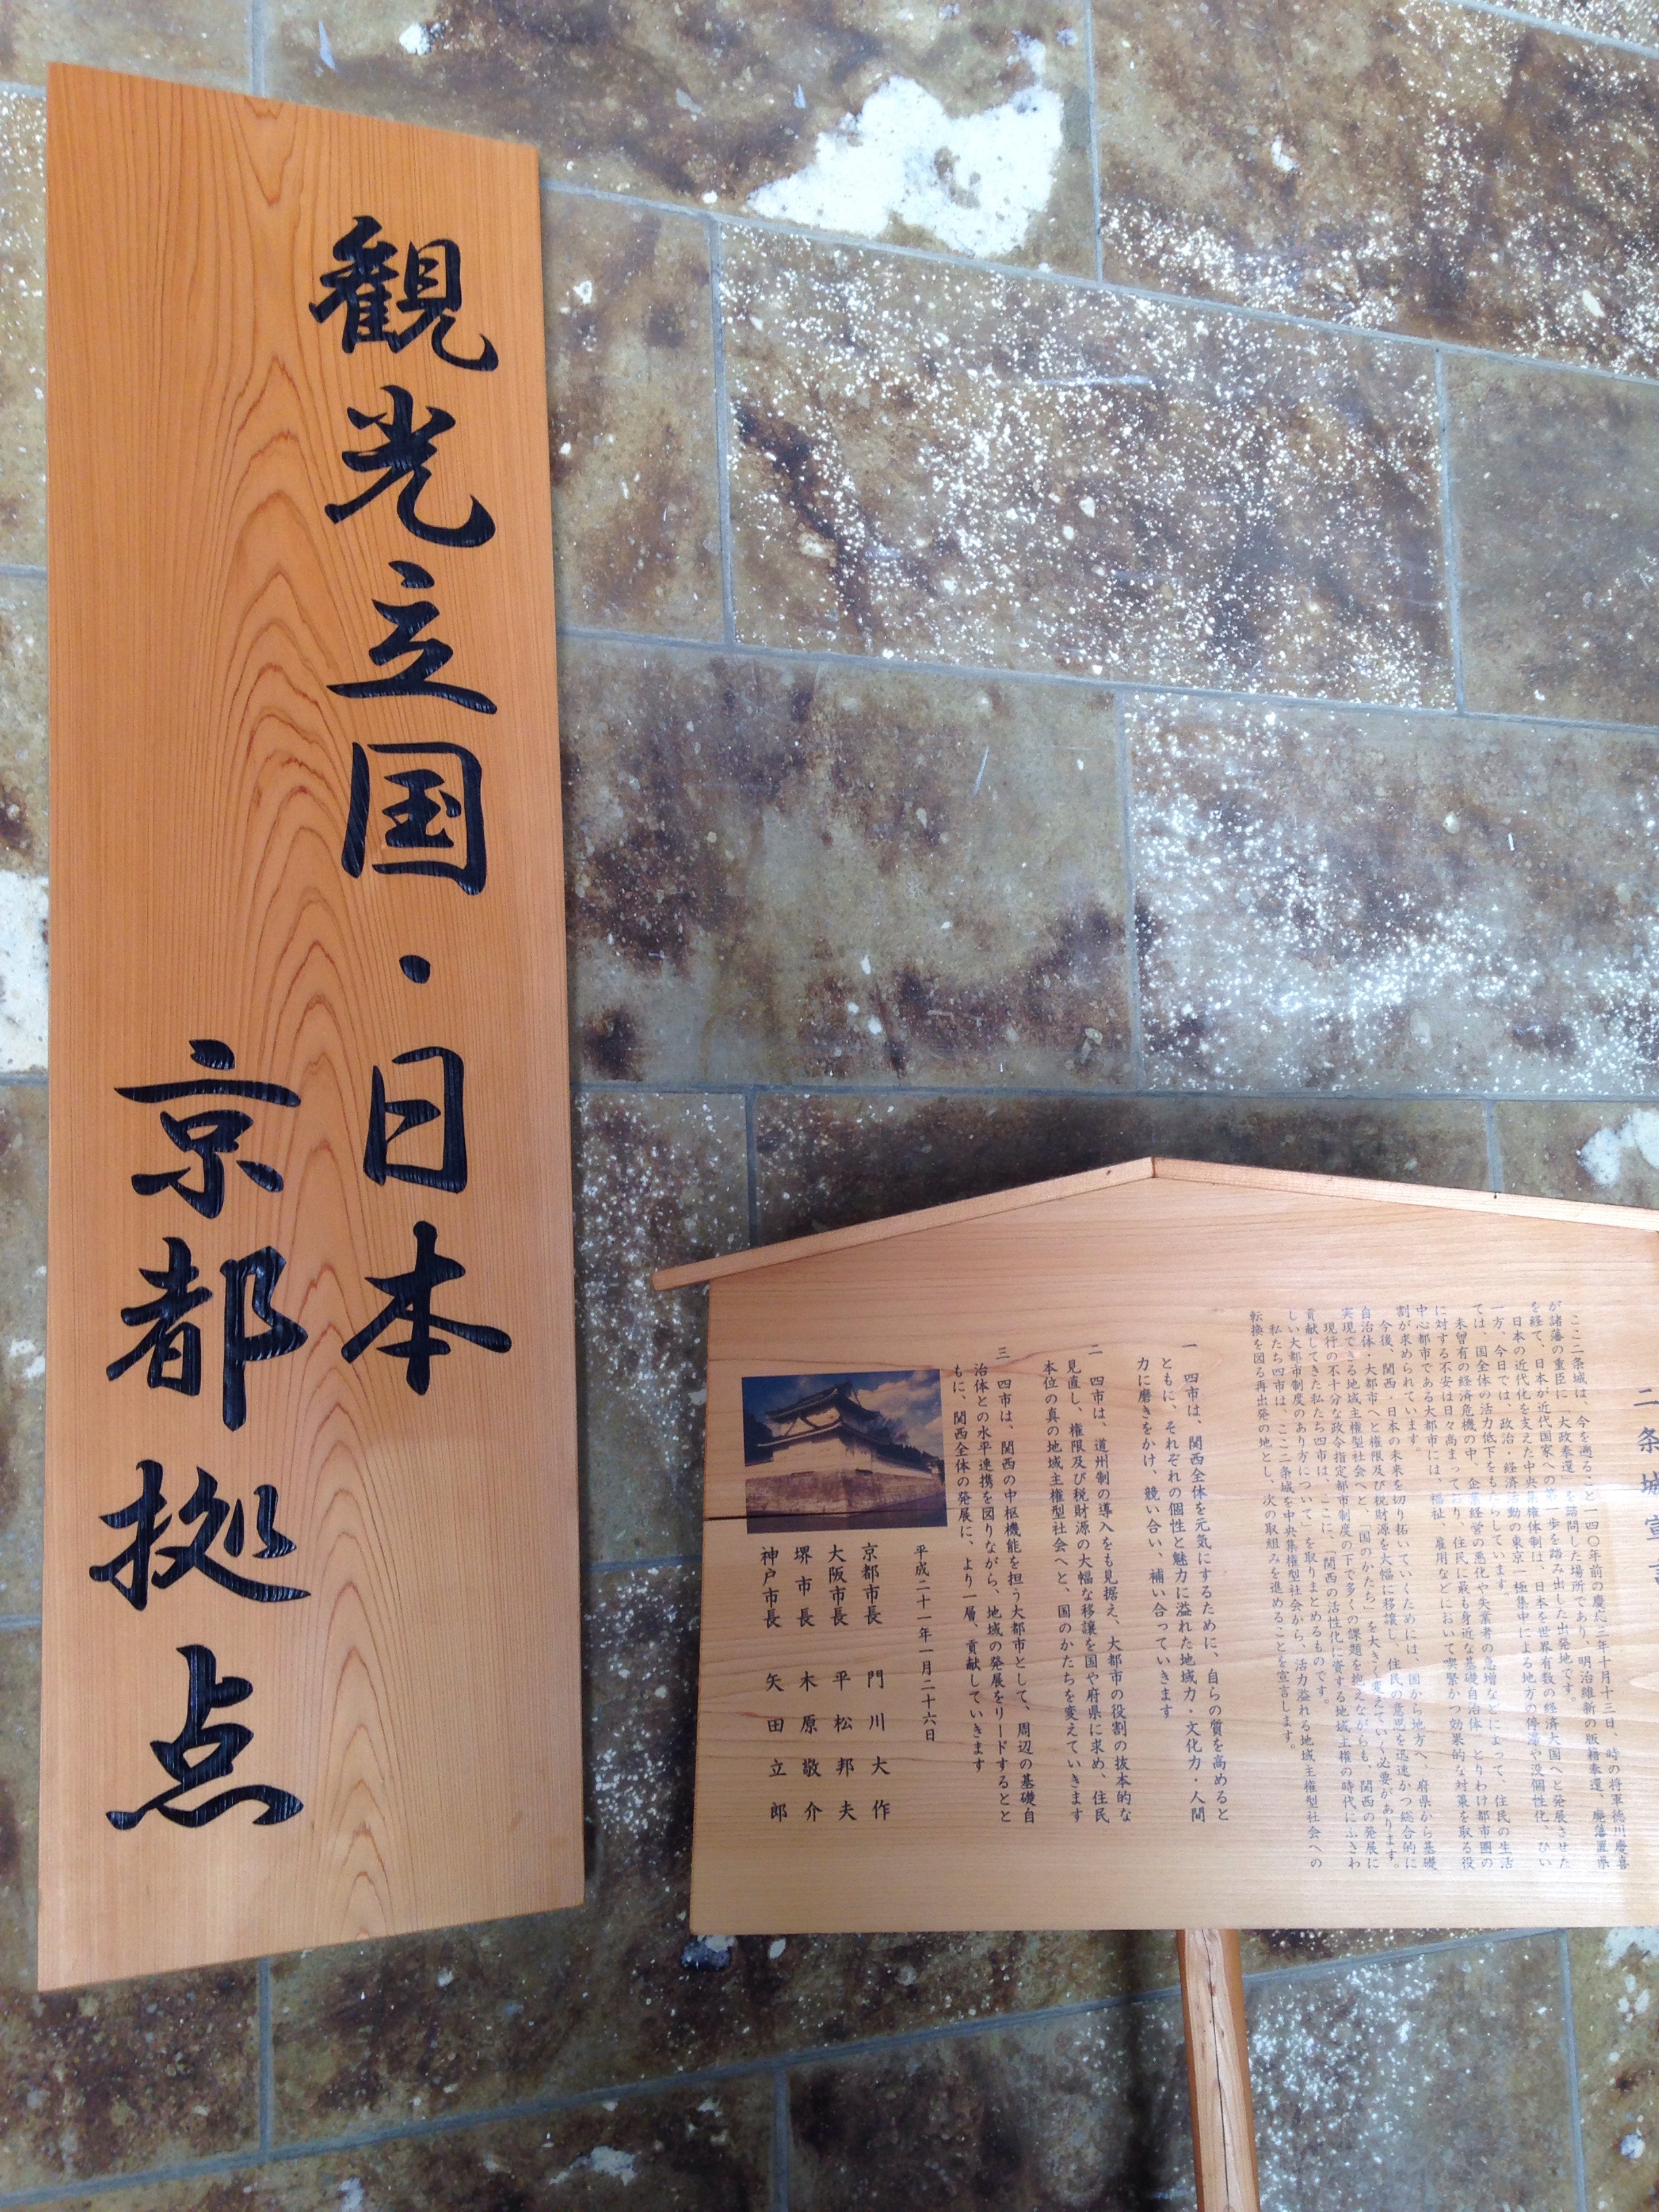 観光立国・日本
京都拠点
二条城宣言
ここ二条城は、今を遡ること一四〇年前の慶応三年十月十三日、時の将軍徳川慶喜
が諸藩の重臣に「大政奉還」を諮問した場所であり、明治維新の版籍奉還、廃藩置県
を経て、日本が近代国家への第一歩を踏み出した出発地です。
日本の近代化を支えた中央集権体制は、日本を世界有数の経済大国へと発展させた
一方、今日では、政治・経済活動の東京一極集中による地方の停滞や没個性化、ひい
ては、国全体の活力低下をもたらしています。
未曾有の経済危機の中、企業経営の悪化や失業者の急増などによって、住民の生活
に対する不安は日々高まっており、住民に最も身近な基礎自治体、とりわけ都市圏の
中心都市である大都市には、福祉、雇用などにおいて喫緊かつ効果的な対策を取る役
割が求められています。
今後、関西・日本の未来を切り拓いていくためには、国から地方へ、府県から基礎
自治体・大都市へと権限及び税財源を大幅に移譲し、住民の意思を迅速かつ総合的に
実現できる地域主権型社会へと、「国のかたち」を大きく変えていく必要があります。
現行の不十分な政令指定都市制度の下で多くの課題を抱えながらも、関西の発展に
貢献してきた私たち四市は、ここに、「関西の活性化に資する地域主権の時代にふさわ
しい大都市制度のあり方について」を取りまとめるものです。
私たち四市は、ここ二条城を中央集権型社会から、活力溢れる地域主権型社会への
転換を図る再出発の地とし、次の取組みを進めることを宣言します。
一　四市は、関西全体を元気にするために、自らの質を高めると
ともに、それぞれの個性と魅力に溢れた地域力・文化力・人間
力に磨きをかけ、競い合い、補い合っていきます
二　四市は、道州制の導入をも見据え、大都市の役割の抜本的な
見直し、権限及び税財源の大幅な移譲を国や府県に求め、住民
本位の真の地域主権型社会へと、国のかたちを変えていきます
三　四市は、関西の中枢機能を担う大都市として、周辺の基礎自
治体との水平連携を図りながら、地域の発展をリードするとと
もに、関西全体の発展に、より一層、貢献していきます
平成二十一年一月二十六日
京都市長　門川大作
大阪市長　平松邦夫
堺市長　木原敬介
神戸市長　矢田立郎